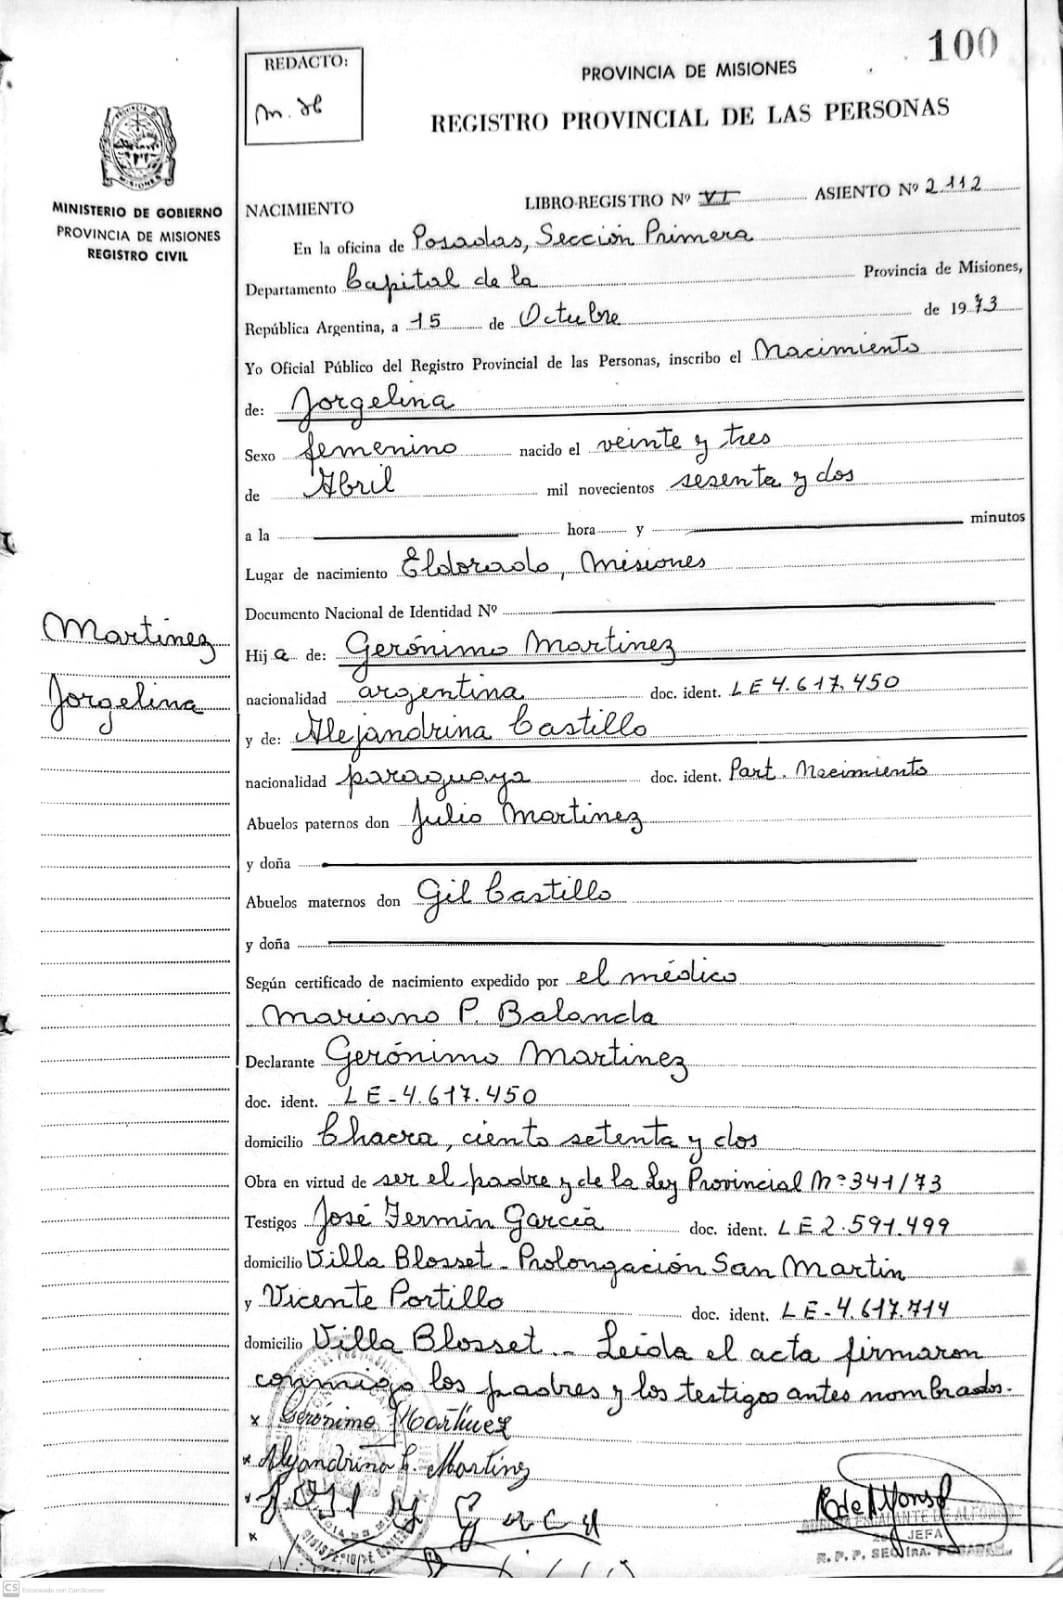 100
REDACTO:
M. H
PROVINCIA DE MISIONES
REGISTRO PROVINCIAL DE LAS PERSONAS
MISIONES
MINISTERIO DE GOBIERNO
PROVINCIA DE MISIONES
REGISTRO CIVIL
NACIMIENTO
LIBRO-REGISTRO Nº VI ASIENTO Nº 2.112
En la oficina de Posadas, Sección Primera
Departamento Capital de la Provincia de Misiones,
República Argentina, a 15 de Octubre de 1973
Yo Oficial Público del Registro Provincial de las Personas, inscribo el Nacimiento
de: Jorgelina
Sexo femenino nacido el veinte y tres
de Abril mil novecientos sesenta y dos
a la hora y minutos
Lugar de nacimiento Eldorado, Misiones
Documento Nacional de Identidad Nº
Martinez
Jorgelina
Hij a de: Gerónimo Martinez
nacionalidad argentina doc. ident. LE 4.617.450
y de: Alejandrina Castillo
nacionalidad paraguaya doc. ident. Part. Nacimiento
Abuelos paternos don Julio Martinez
y doña
Abuelos maternos don Gil Castillo
y doña
Según certificado de nacimiento expedido por el médico
Mariano P. Balanda
Declarante Gerónimo Martinez
doc. ident. LE-4.617.450
domicilio Chacra, ciento setenta y dos
Obra en virtud de ser el padre y de la Ley Provincial Nº 341/73
Testigos José Fermin Garcia doc. ident. LE 2.591.499
domicilio Villa Blosset - Prolongación San Martin
y Vicente Portillo doc. ident. LE-4.617.714
domicilio Villa Blosset. - Leida el acta firmaron
conmigo los padres y los testigos antes nombrados.
x Gerónimo Martinez
x Alejandrina C. Martinez
x
x
JEFA
R. P. P. SEC. 1RA. POSADAS
CS Escaneado con CamScanner